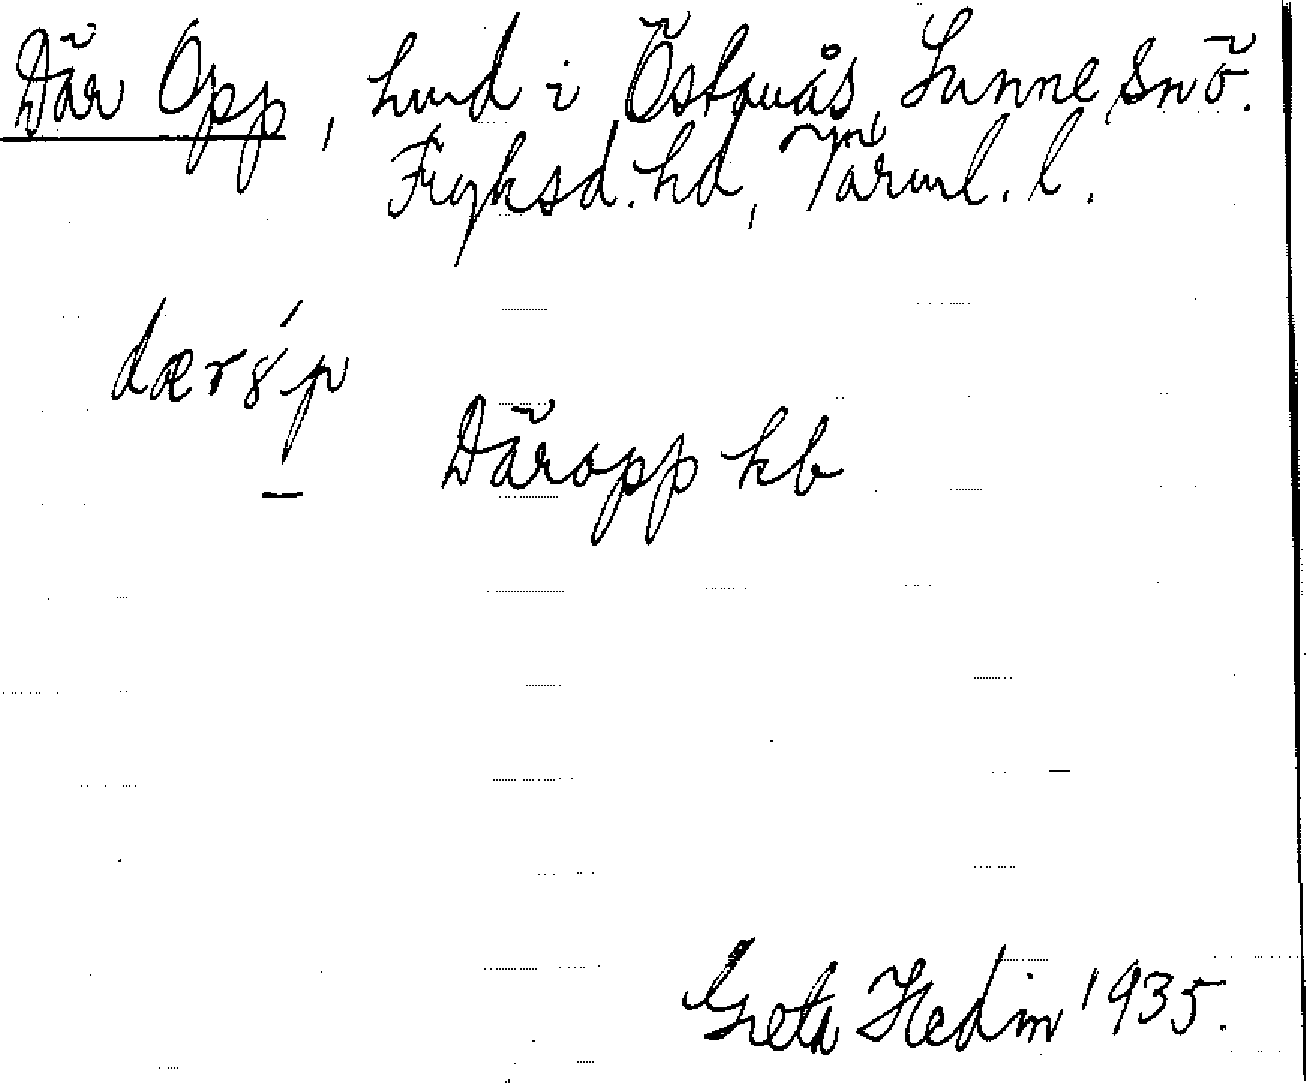 Där Opp, lund i Östanås, Sunne, snö.
Fryksd. hd, Värml. l.
dær
Däropp kb
Greta Hedin 1935.